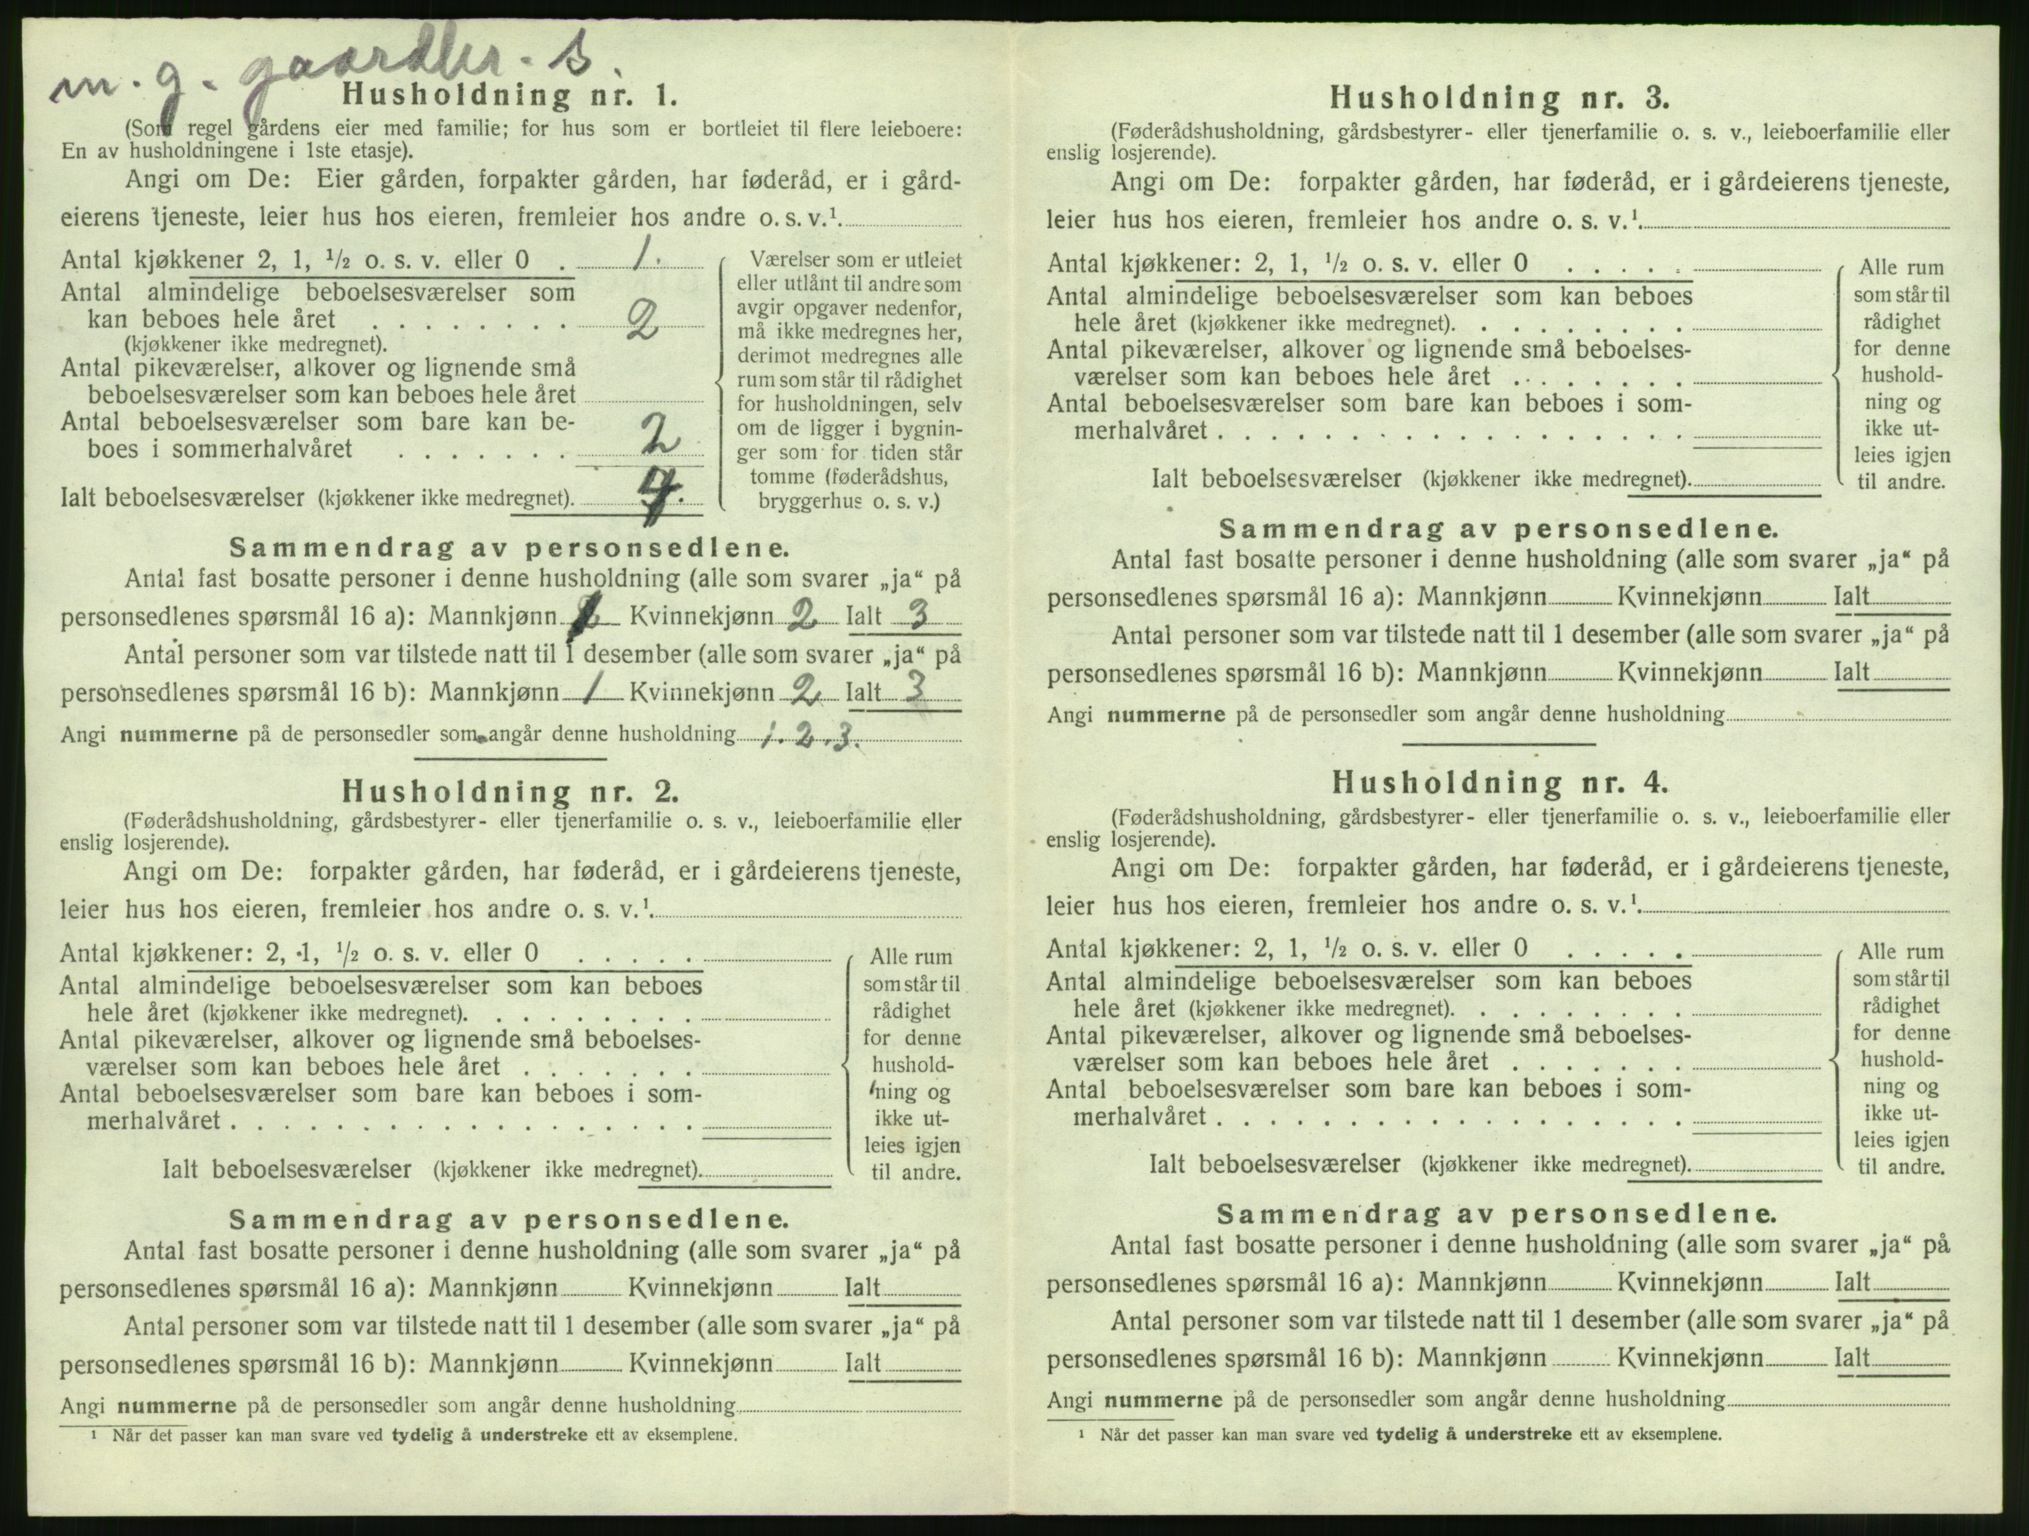 m. g. gaardbr. s.
Husholdning nr. 1.
(Som regel gårdens eier med familie; for hus som er bortleiet til flere leieboere:
En av husholdningene i 1ste etasje).
Angi om De: Eier gården, forpakter gården, har føderåd, er i gård-
eierens tjeneste, leier hus hos eieren, fremleier hos andre o. s. v.¹.
Antal kjøkkener 2, 1, ½ o. s. v. eller 0 . 1.
Antal almindelige beboelsesværelser som
kan beboes hele året . . . . . . . . 2
(kjøkkener ikke medregnet).
Antal pikeværelser, alkover og lignende små
beboelsesværelser som kan beboes hele året
Antal beboelsesværelser som bare kan be-
boes i sommerhalvåret . . . . . . . 2
Ialt beboelsesværelser (kjøkkener ikke medregnet). 4.
Værelser som er utleiet
eller utlånt til andre som
avgir opgaver nedenfor,
må ikke medregnes her,
derimot medregnes alle
rum som står til rådighet
for husholdningen, selv
om de ligger i bygnin-
ger som for tiden står
tomme (føderådshus,
bryggerhus o. s. v.)
Sammendrag av personsedlene.
Antal fast bosatte personer i denne husholdning (alle som svarer „ja“ på
personsedlenes spørsmål 16 a): Mannkjønn 1 Kvinnekjønn 2 Ialt 3
Antal personer som var tilstede natt til 1 desember (alle som svarer „ja“ på
personsedlenes spørsmål 16 b): Mannkjønn 1 Kvinnekjønn 2 Ialt 3
Angi nummerne på de personsedler som angår denne husholdning 1. 2. 3.
Husholdning nr. 2.
(Føderådshusholdning, gårdsbestyrer- eller tjenerfamilie o. s. v., leieboerfamilie eller
enslig losjerende).
Angi om De: forpakter gården, har føderåd, er i gårdeierens tjeneste,
leier hus hos eieren, fremleier hos andre o. s. v.¹.
Antal kjøkkener: 2, 1, ½ o. s. v. eller 0 . . . . .
Antal almindelige beboelsesværelser som kan beboes
hele året (kjøkkener ikke medregnet). . . . . . . . .
Antal pikeværelser, alkover og lignende små beboelses-
værelser som kan beboes hele året . . . . . . .
Antal beboelsesværelser som bare kan beboes i som-
merhalvåret . . . . . . . . . . . . . . . . . .
Ialt beboelsesværelser (kjøkkener ikke medregnet).
Alle rum
som står til
rådighet
for denne
hushold-
ning og
ikke ut-
leies igjen
til andre.
Sammendrag av personsedlene.
Antal fast bosatte personer i denne husholdning (alle som svarer „ja“ på
personsedlenes spørsmål 16 a): Mannkjønn Kvinnekjønn Ialt
Antal personer som var tilstede natt til 1 desember (alle som svarer „ja“ på
personsedlenes spørsmål 16 b): Mannkjønn Kvinnekjønn Ialt
Angi nummerne på de personsedler som angår denne husholdning
¹ Når det passer kan man svare ved tydelig å understreke ett av eksemplene.
Husholdning nr. 3.
(Føderådshusholdning, gårdsbestyrer- eller tjenerfamilie o. s. v., leieboerfamilie eller
enslig losjerende).
Angi om De: forpakter gården, har føderåd, er i gårdeierens tjeneste,
leier hus hos eieren, fremleier hos andre o. s. v.¹.
Antal kjøkkener: 2, 1, ½ o. s. v. eller 0 . . . . .
Antal almindelige beboelsesværelser som kan beboes
hele året (kjøkkener ikke medregnet). . . . . . . . .
Antal pikeværelser, alkover og lignende små beboelses-
værelser som kan beboes hele året . . . . . . .
Antal beboelsesværelser som bare kan beboes i som-
merhalvåret . . . . . . . . . . . . . . . . . .
Ialt beboelsesværelser (kjøkkener ikke medregnet).
Alle rum
som står til
rådighet
for denne
hushold-
ning og
ikke ut-
leies igjen
til andre.
Sammendrag av personsedlene.
Antal fast bosatte personer i denne husholdning (alle som svarer „ja“ på
personsedlenes spørsmål 16 a): Mannkjønn Kvinnekjønn Ialt
Antal personer som var tilstede natt til 1 desember (alle som svarer „ja“ på
personsedlenes spørsmål 16 b): Mannkjønn Kvinnekjønn Ialt
Angi nummerne på de personsedler som angår denne husholdning
Husholdning nr. 4.
(Føderådshusholdning, gårdsbestyrer- eller tjenerfamilie o. s. v., leieboerfamilie eller
enslig losjerende).
Angi om De: forpakter gården, har føderåd, er i gårdeierens tjeneste,
leier hus hos eieren, fremleier hos andre o. s. v.¹.
Antal kjøkkener: 2, 1, ½ o. s. v. eller 0 . . . . .
Antal almindelige beboelsesværelser som kan beboes
hele året (kjøkkener ikke medregnet). . . . . . . . .
Antal pikeværelser, alkover og lignende små beboelses-
værelser som kan beboes hele året . . . . . . .
Antal beboelsesværelser som bare kan beboes i som-
merhalvåret . . . . . . . . . . . . . . . . . .
Ialt beboelsesværelser (kjøkkener ikke medregnet).
Alle rum
som står til
rådighet
for denne
hushold-
ning og
ikke ut-
leies igjen
til andre.
Sammendrag av personsedlene.
Antal fast bosatte personer i denne husholdning (alle som svarer „ja“ på
personsedlenes spørsmål 16 a): Mannkjønn Kvinnekjønn Ialt
Antal personer som var tilstede natt til 1 desember (alle som svarer „ja“ på
personsedlenes spørsmål 16 b): Mannkjønn Kvinnekjønn Ialt
Angi nummerne på de personsedler som angår denne husholdning
¹ Når det passer kan man svare ved tydelig å understreke ett av eksemplene.